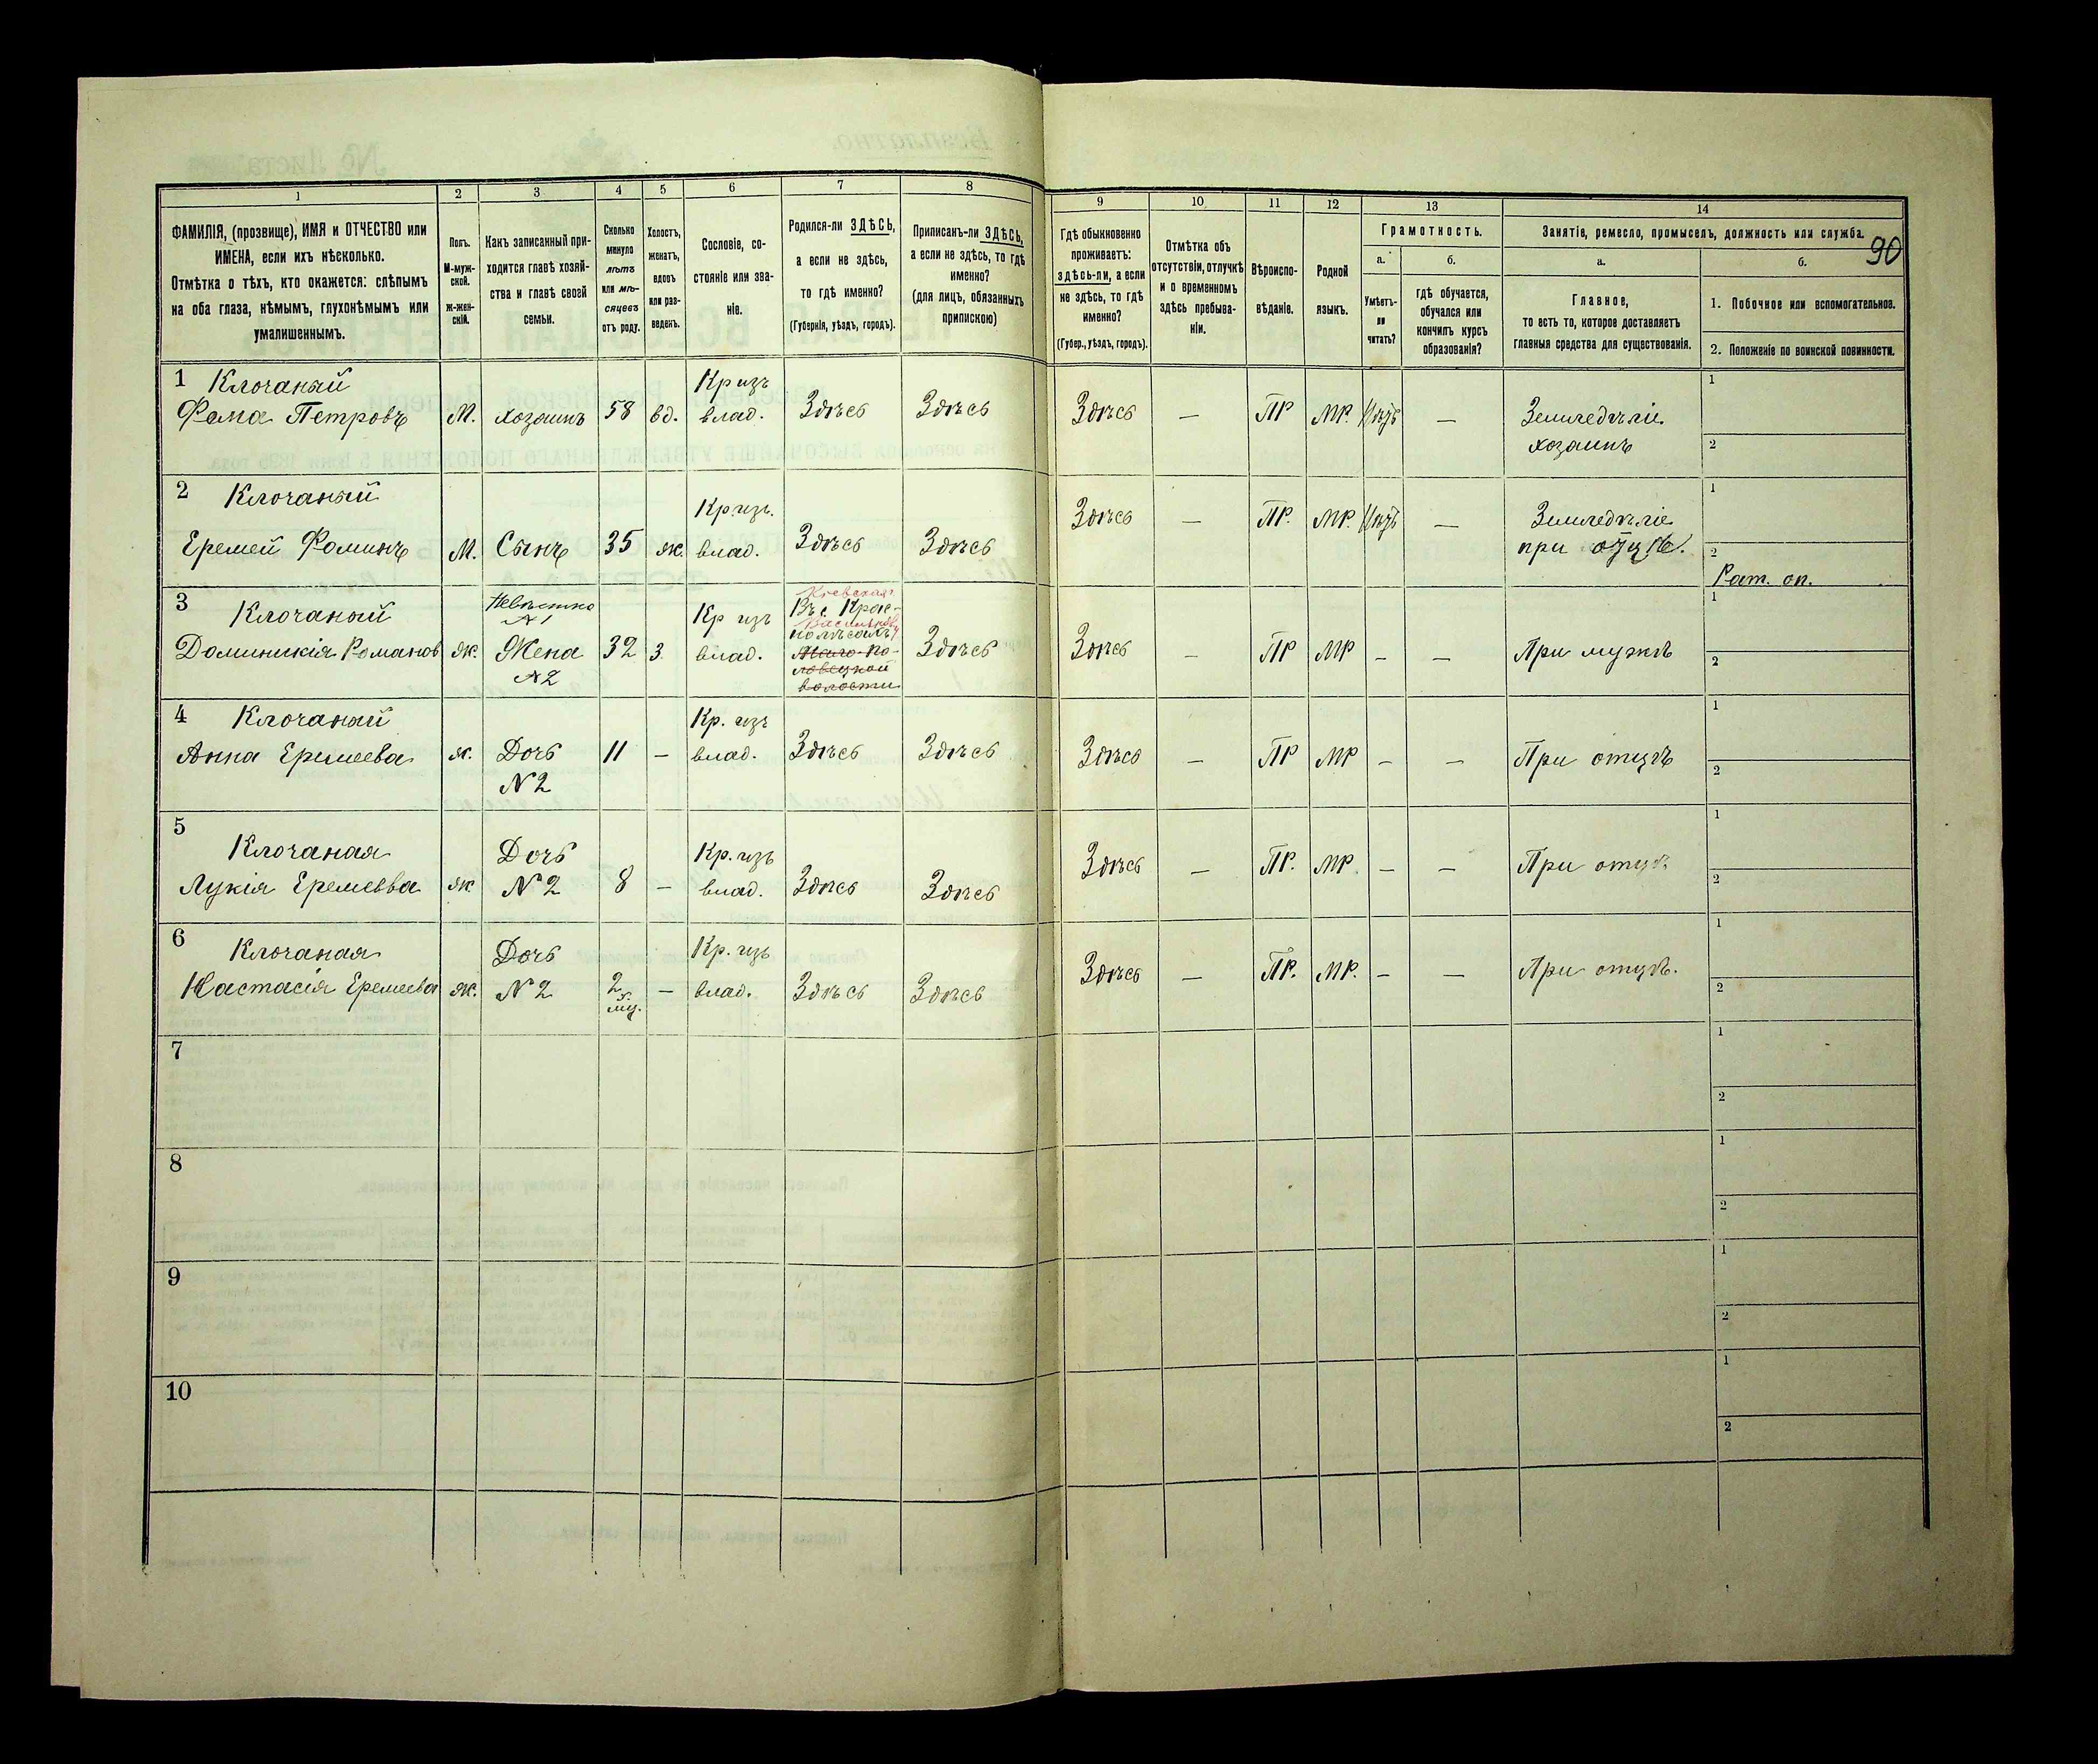 1 2 3 4 5 6 7 8 9 10 11 12 13 14
ФАМИЛІЯ, (прозвище), ИМЯ и ОТЧЕСТВО или
ИМЕНА, если ихъ нѣсколько.
Отмѣтка о тѣхъ, кто окажется: слѣпымъ
на оба глаза, нѣмымъ, глухонѣмымъ или
умалишеннымъ.
Полъ.
М-муж-
ской.
ж-жен-
скій.
Какъ записанный при-
ходится главѣ хозяй-
ства и главѣ своей
семьи.
Сколько
минуло
лѣтъ
или мѣ-
сяцевъ
отъ роду.
Холостъ,
женатъ,
вдовъ
или раз-
веденъ.
Сословіе, со-
стояніе или зва-
ніе.
Родился-ли ЗДѢСЬ,
а если не здѣсь,
то гдѣ именно?
(Губернія, уѣздъ, городъ).
Приписанъ-ли ЗДѢСЬ,
а если не здѣсь, то гдѣ
именно?
(для лицъ, обязанныхъ
припискою)
Гдѣ обыкновенно
проживаетъ:
здѣсь-ли, а если
не здѣсь, то гдѣ
именно?
(Губер., уѣздъ, городъ).
Отмѣтка объ
отсутствіи, отлучкѣ
и о временномъ
здѣсь пребыва-
ніи.
Вѣроиспо-
вѣданіе.
Родной
языкъ.
Грамотность.
а.
Умѣетъ-
ли
читать?
б.
гдѣ обучается,
обучался или
кончилъ курсъ
образованія?
Занятіе, ремесло, промыселъ, должность или служба.
90
а.
Главное,
то есть то, которое доставляетъ
главныя средства для существованія.
б.
1. Побочное или вспомогательное.
2. Положеніе по воинской повинности.
1 Клочаный Кр изъ 1
Фома Петровъ М. хозаинъ 58 вд. влад. Здѣсь Здѣсь Здѣсь — ПР МР. Нѣтъ — Земледѣліе
хозаинъ 2
2 Клочаный Кр. изъ. 1
Еремей Фоминъ М. Сынъ 35 ж. влад. Здѣсь Здѣсь Здѣсь — ПР. МР. Нѣтъ — Земледѣліе
при отцѣ. 2
Рат. оп.
3 Клочаный Невѣстка Кр изъ Кіевская 1
№ 1 Въ с. Крас-
Доминикія Романов ж. Жена 32 з. влад. Здѣсь Здѣсь — ПР МР — — При мужѣ 2
№ 2
волости
4 Клочаный Кр. изъ 1
Анна Еремеева ж. Дочь 11 — влад. Здѣсь Здѣсь Здѣсь — ПР МР — — При отцѣ 2
№ 2
5 Клочаная Дочь Кр. изъ 1
Лукія Еремеева ж № 2 8 — влад. Здѣсь Здѣсь Здѣсь — ПР. МР. — — При отцѣ 2
6 Клочаная Дочь Кр. изъ 1
Настасія Еремеева ж. № 2 2 — влад. Здѣсь Здѣсь Здѣсь — ПР. МР. — — При отцѣ. 2
7 1
2
8 1
2
9 1
2
10 1
2